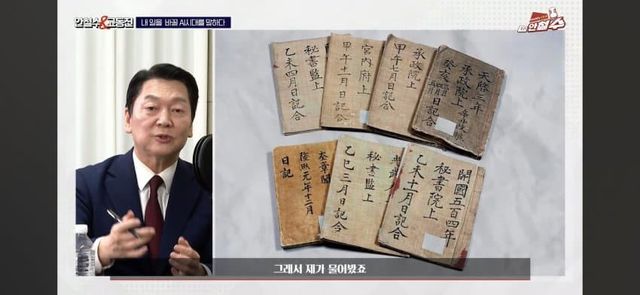 안철수&고동진
내 일을 바꿀 AI시대를 말하다
안철수
乙未四月日記合
秘書監上
甲午十一月日記合
宮內府上
甲午七月日記合
承政院上
天啓三年
承政院上
癸亥
日記合
隆熙元年十二月
日記
奎章閣
乙巳三月日記合
秘書監上
開國五百四年
秘書院上
乙未十一月日記合
그래서 제가 물어봤죠